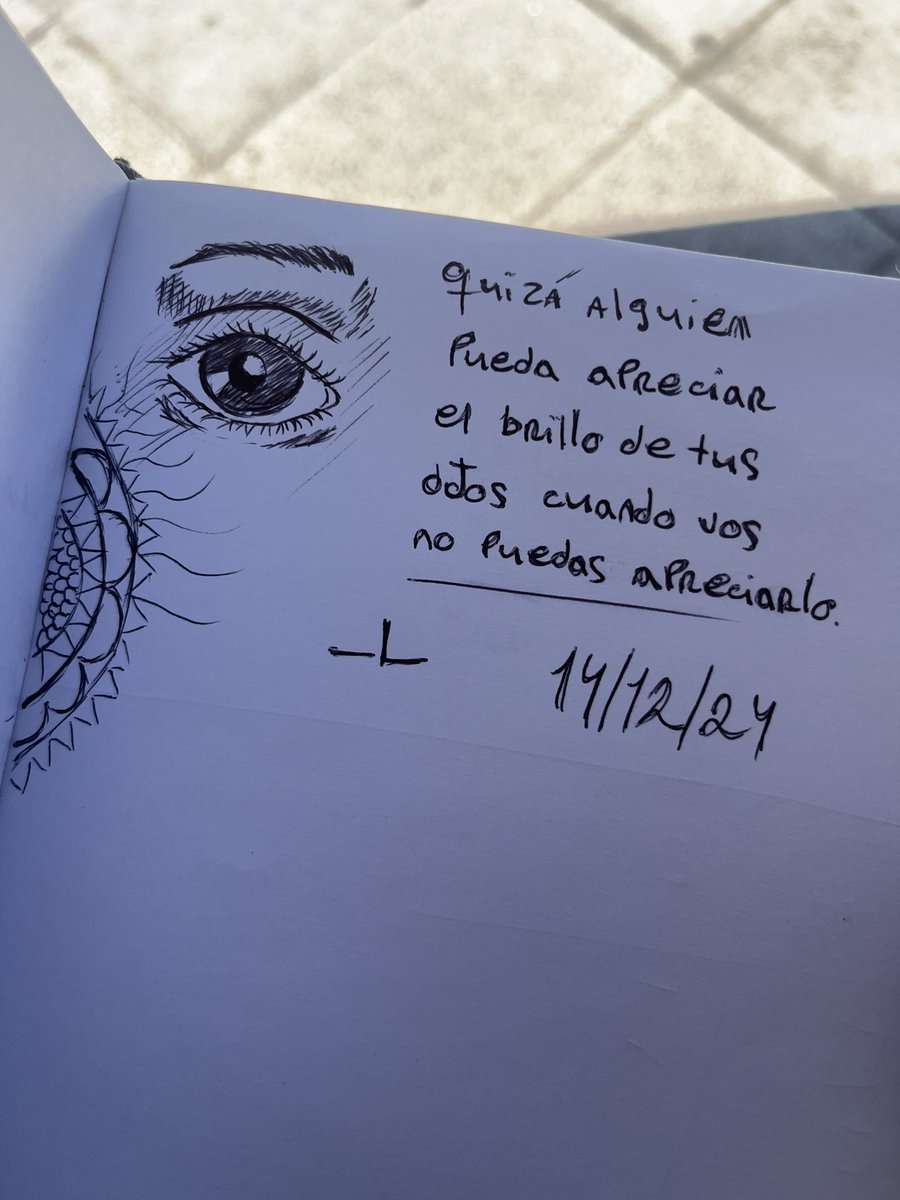 quizá alguien
pueda apreciar
el brillo de tus
ojos cuando vos
no puedas apreciarlo.
-L
14/12/24